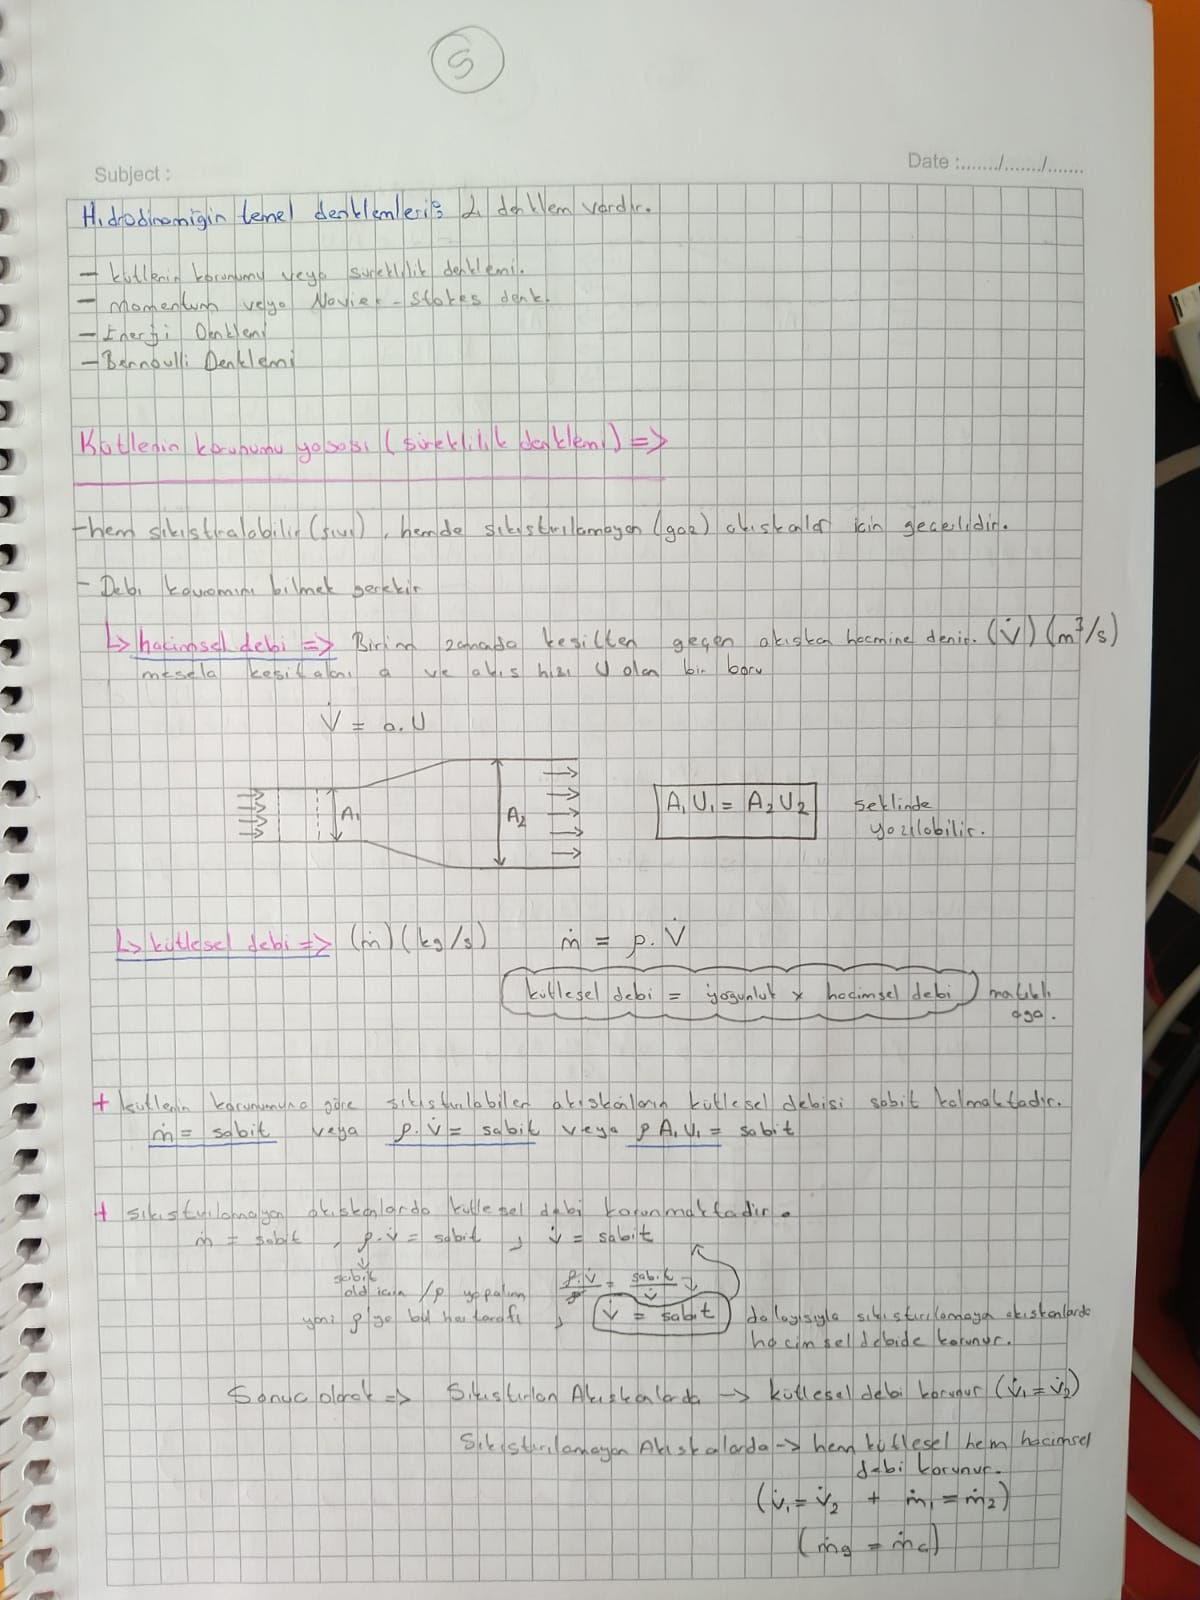 5
Subject :
Date :......./......./.......
Hidrodinamiğin temel denklemleri: 4 denklem vardır.
– kütlenin korunumu veya süreklilik denklemi.
– Momentum veya Navier - Stokes denk.
– Enerji Denklemi
– Bernoulli Denklemi
Kütlenin korunumu yasası (süreklilik denklemi) =>
- hem sıkıstıralabilir (sıvı), hemde sıkıstırılamayan (gaz) akıskanlar icin gecerlidir.
- Debi kavramını bilmek gerekir
↳ hacimsel debi => Birim zamanda kesitten geçen akıskan hacmine denir. (V̇) (m³/s)
mesela kesit alanı a ve akıs hızı U olan bir boru
V̇ = a.U
A₁
A₂
A₁ U₁ = A₂ U₂
seklinde
yazılabilir.
↳ kütlesel debi => (ṁ) (kg/s)
ṁ = ρ. V̇
kütlesel debi = yogunluk x hacimsel debi
+ kütlenin korunumuna göre sıkıstırılabilen akıskanların kütlesel debisi sabit kalmaktadır.
ṁ = sabit veya ρ. V̇ = sabit veya ρ A₁ U₁ = sabit
+ sıkıstırılamayan akıskanlarda kütlesel debi korunmaktadır.
ṁ = sabit , ρ.v̇ = sabit , v̇ = sabit
sabit
old icin /ρ yapalım
yani ρ'ya böl her tarafı ,
ρ.v̇/ρ = sabit/v̇
v̇ = sabit
dolayısıyla sıkıstırılamaya akıskanlarda
hacimsel debide korunur.
Sonuc olarak => Sıkıstırılan Akıskanlarda -> kütlesel debi korunur (v̇₁ = v̇₂)
Sıkıstırılamayan Akıskalarda -> hem kütlesel hem hacimsel
debi korunur.
(v̇₁ = v̇₂ + ṁ₁ = ṁ₂)
(ṁg = ṁc)